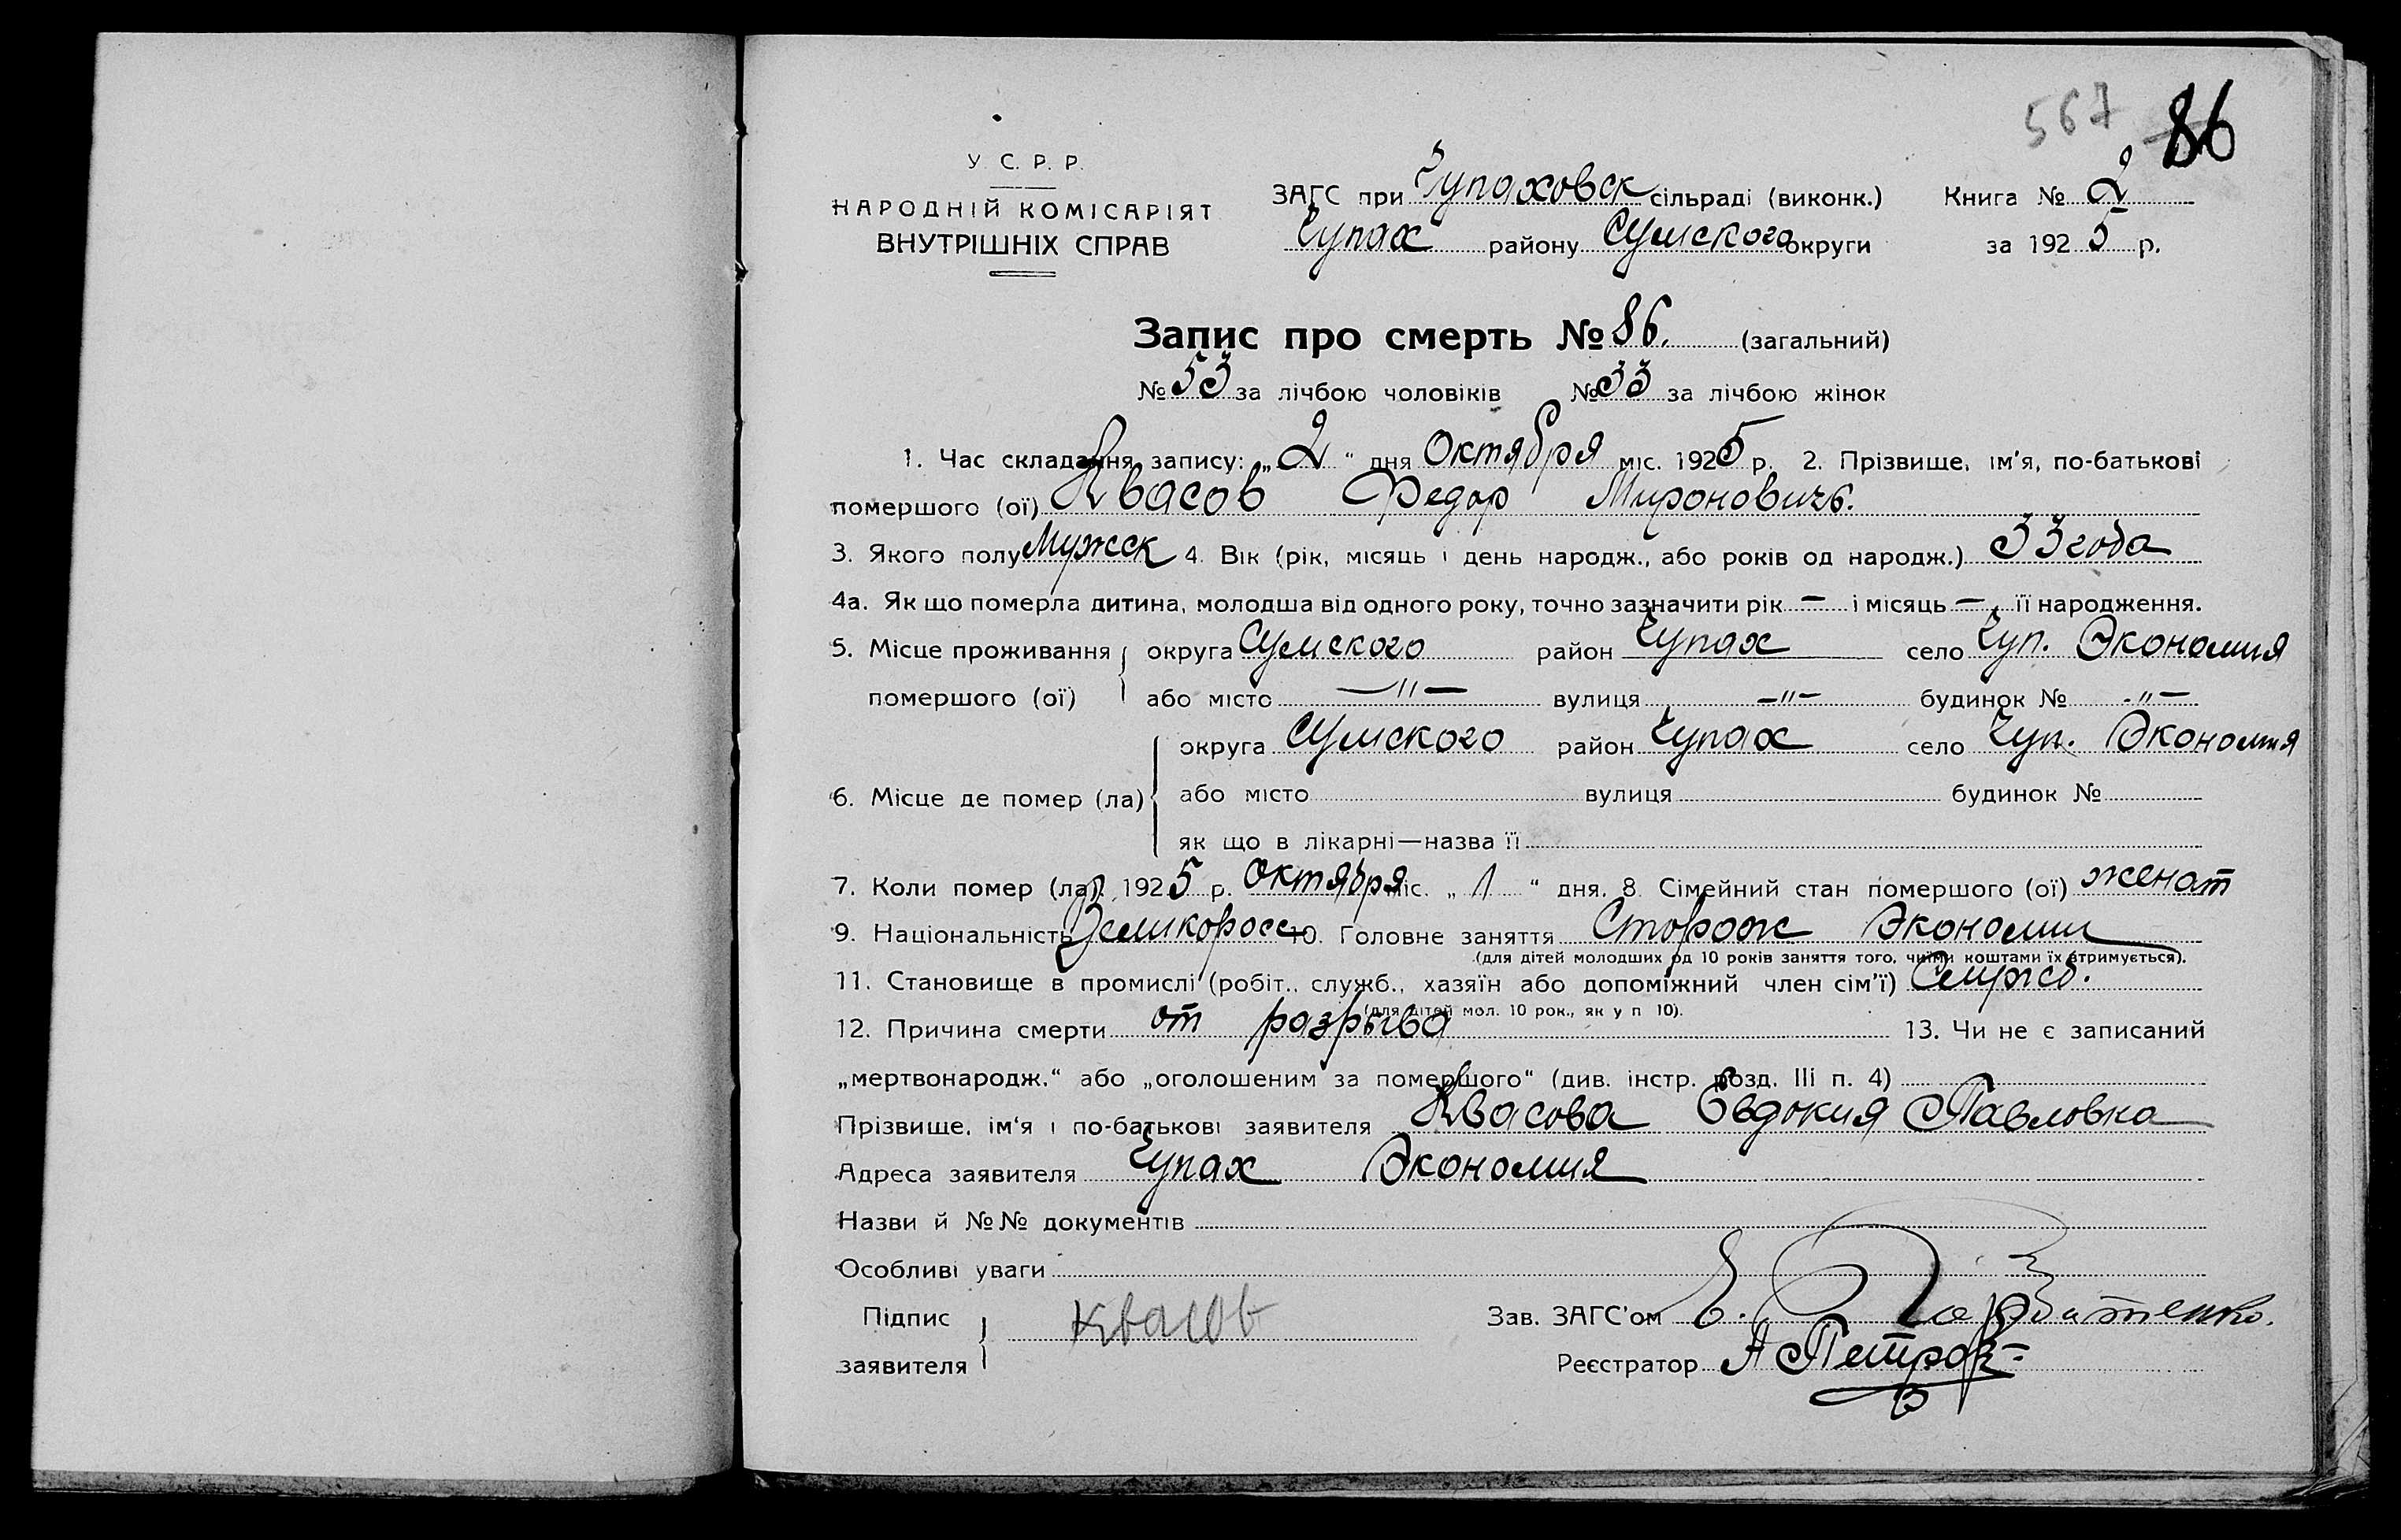 567 86
У. С. Р. Р.
НАРОДНІЙ КОМІСАРІЯТ
ВНУТРІШНІХ СПРАВ
ЗАГС при Чупаховск сільраді (виконк.) Книга № 2
Чупах району Сумского округи за 1925 р.
Запис про смерть № 86. (загальний)
№ 53 за лічбою чоловіків № 33 за лічбою жінок
1. Час складання запису: „2“ дня Октября міс. 1925 р. 2. Прізвище, ім'я, по-батькові
помершого (ої) Квасов Федор Мироновичъ.
3. Якого полу Мужск 4. Вік (рік, місяць і день народж., або років од народж.) 33 года
4а. Як що померла дитина, молодша від одного року, точно зазначити рік — і місяць —, її народження.
5. Місце проживання округа Сумского район Чупах село Чуп. Экономия
помершого (ої) або місто —"— вулиця —"— будинок № —"—
округа Сумского район Чупах село Чуп. Экономия
6. Місце де помер (ла) або місто вулиця будинок №
як що в лікарні—назва її
7. Коли помер (ла). 1925 р. Октября міс. „1“ дня. 8. Сімейний стан помершого (ої) женат
9. Національність Великоросс 10. Головне заняття Сторож Экономии
(для дітей молодших од 10 років заняття того, чиїми коштами їх втримується).
11. Становище в промислі (робіт., служб., хазяїн або допоміжний член сім'ї) Служб.
(для дітей мол. 10 рок., як у п 10).
12. Причина смерти от разрыва 13. Чи не є записаний
„мертвонародж.“ або „оголошеним за помершого“ (див. інстр. розд. III п. 4)
Прізвище, ім'я і по-батькові заявителя Квасова Евдокия Павловна
Адреса заявителя Чупах Экономия
Назви й №№ документів
Особливі уваги
Підпис заявителя Квасов Зав. ЗАГС'ом Е. Горбатенко.
Реєстратор А Петров